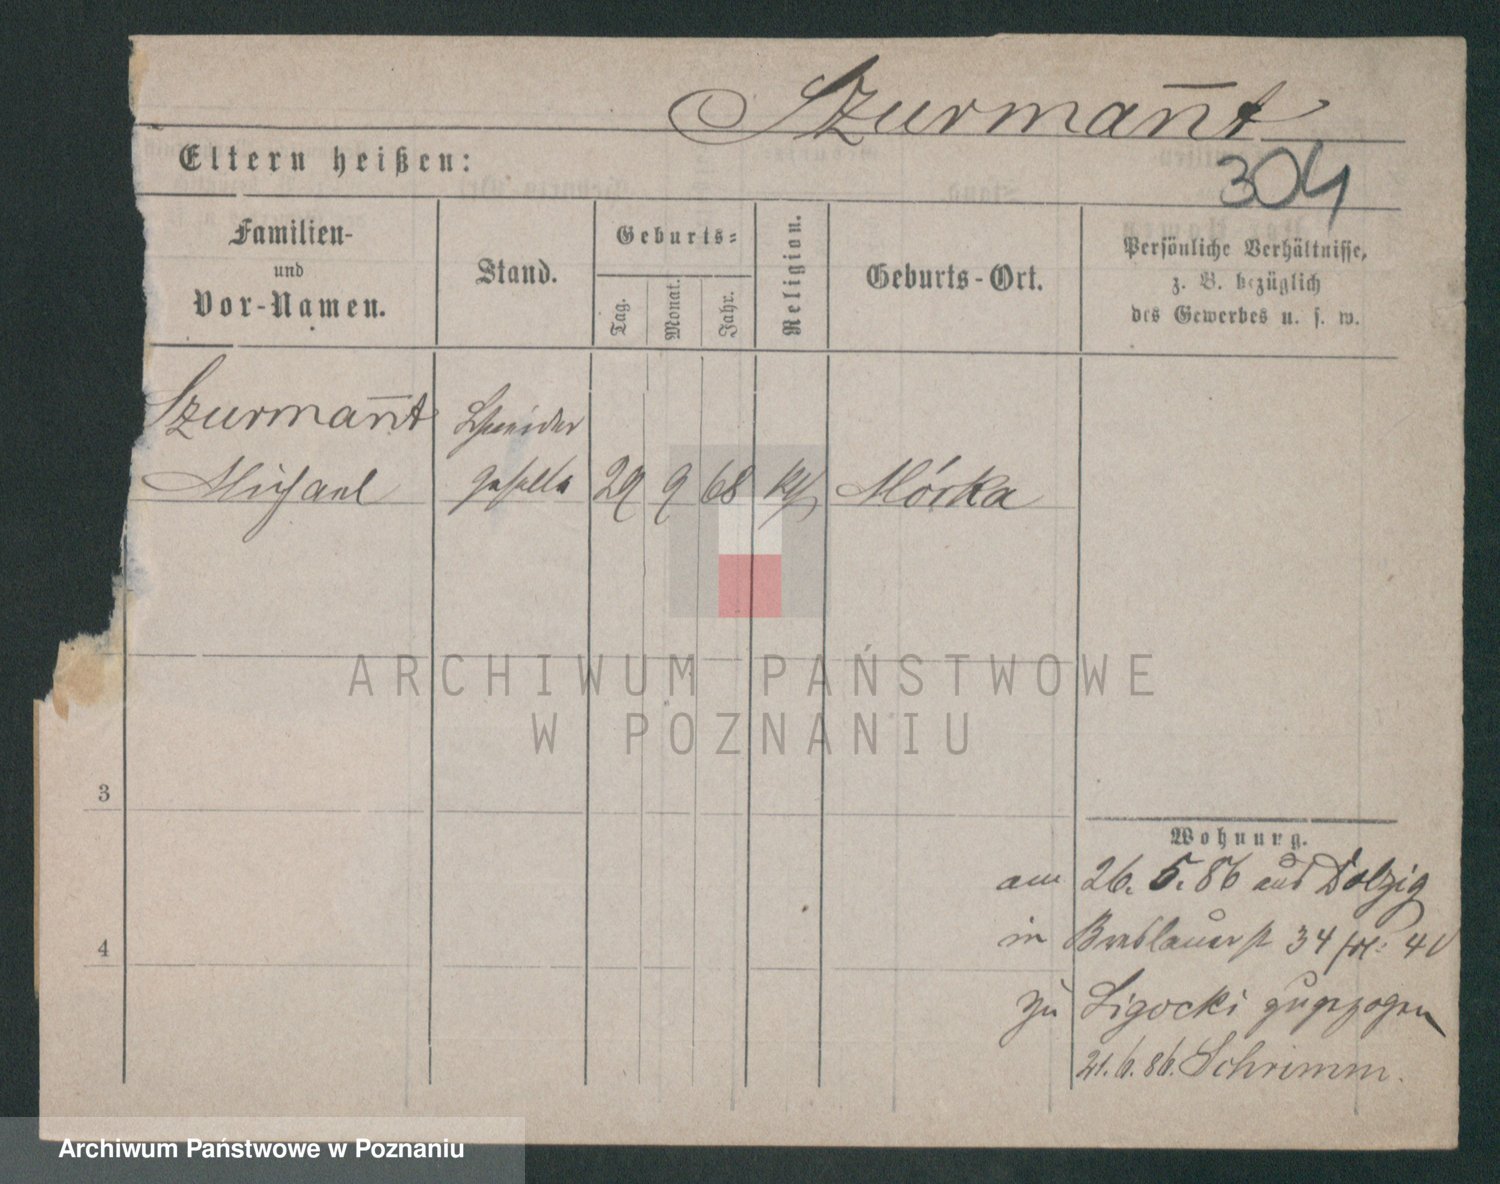 Szurman̄t
304
Eltern heißen:
Familien-
und
Vor-Namen.
Stand.
Geburts-
Tag.
Monat.
Jahr.
Religion.
Geburts-Ort.
Persönliche Verhältnisse,
z. B. bezüglich
des Gewerbes u. s. w.
Szurman̄t Schneider
Michael geselle 29 9 68 kth Mórka
ARCHIWUM PAŃSTWOWE
W POZNANIU
3
4
Wohnung.
am 26. 5. 86 aus Dolzig
in Breslauerst 34 fol: 40
zu Ligocki zugezogen
21. 6. 86. Schrimm.
Archiwum Państwowe w Poznaniu